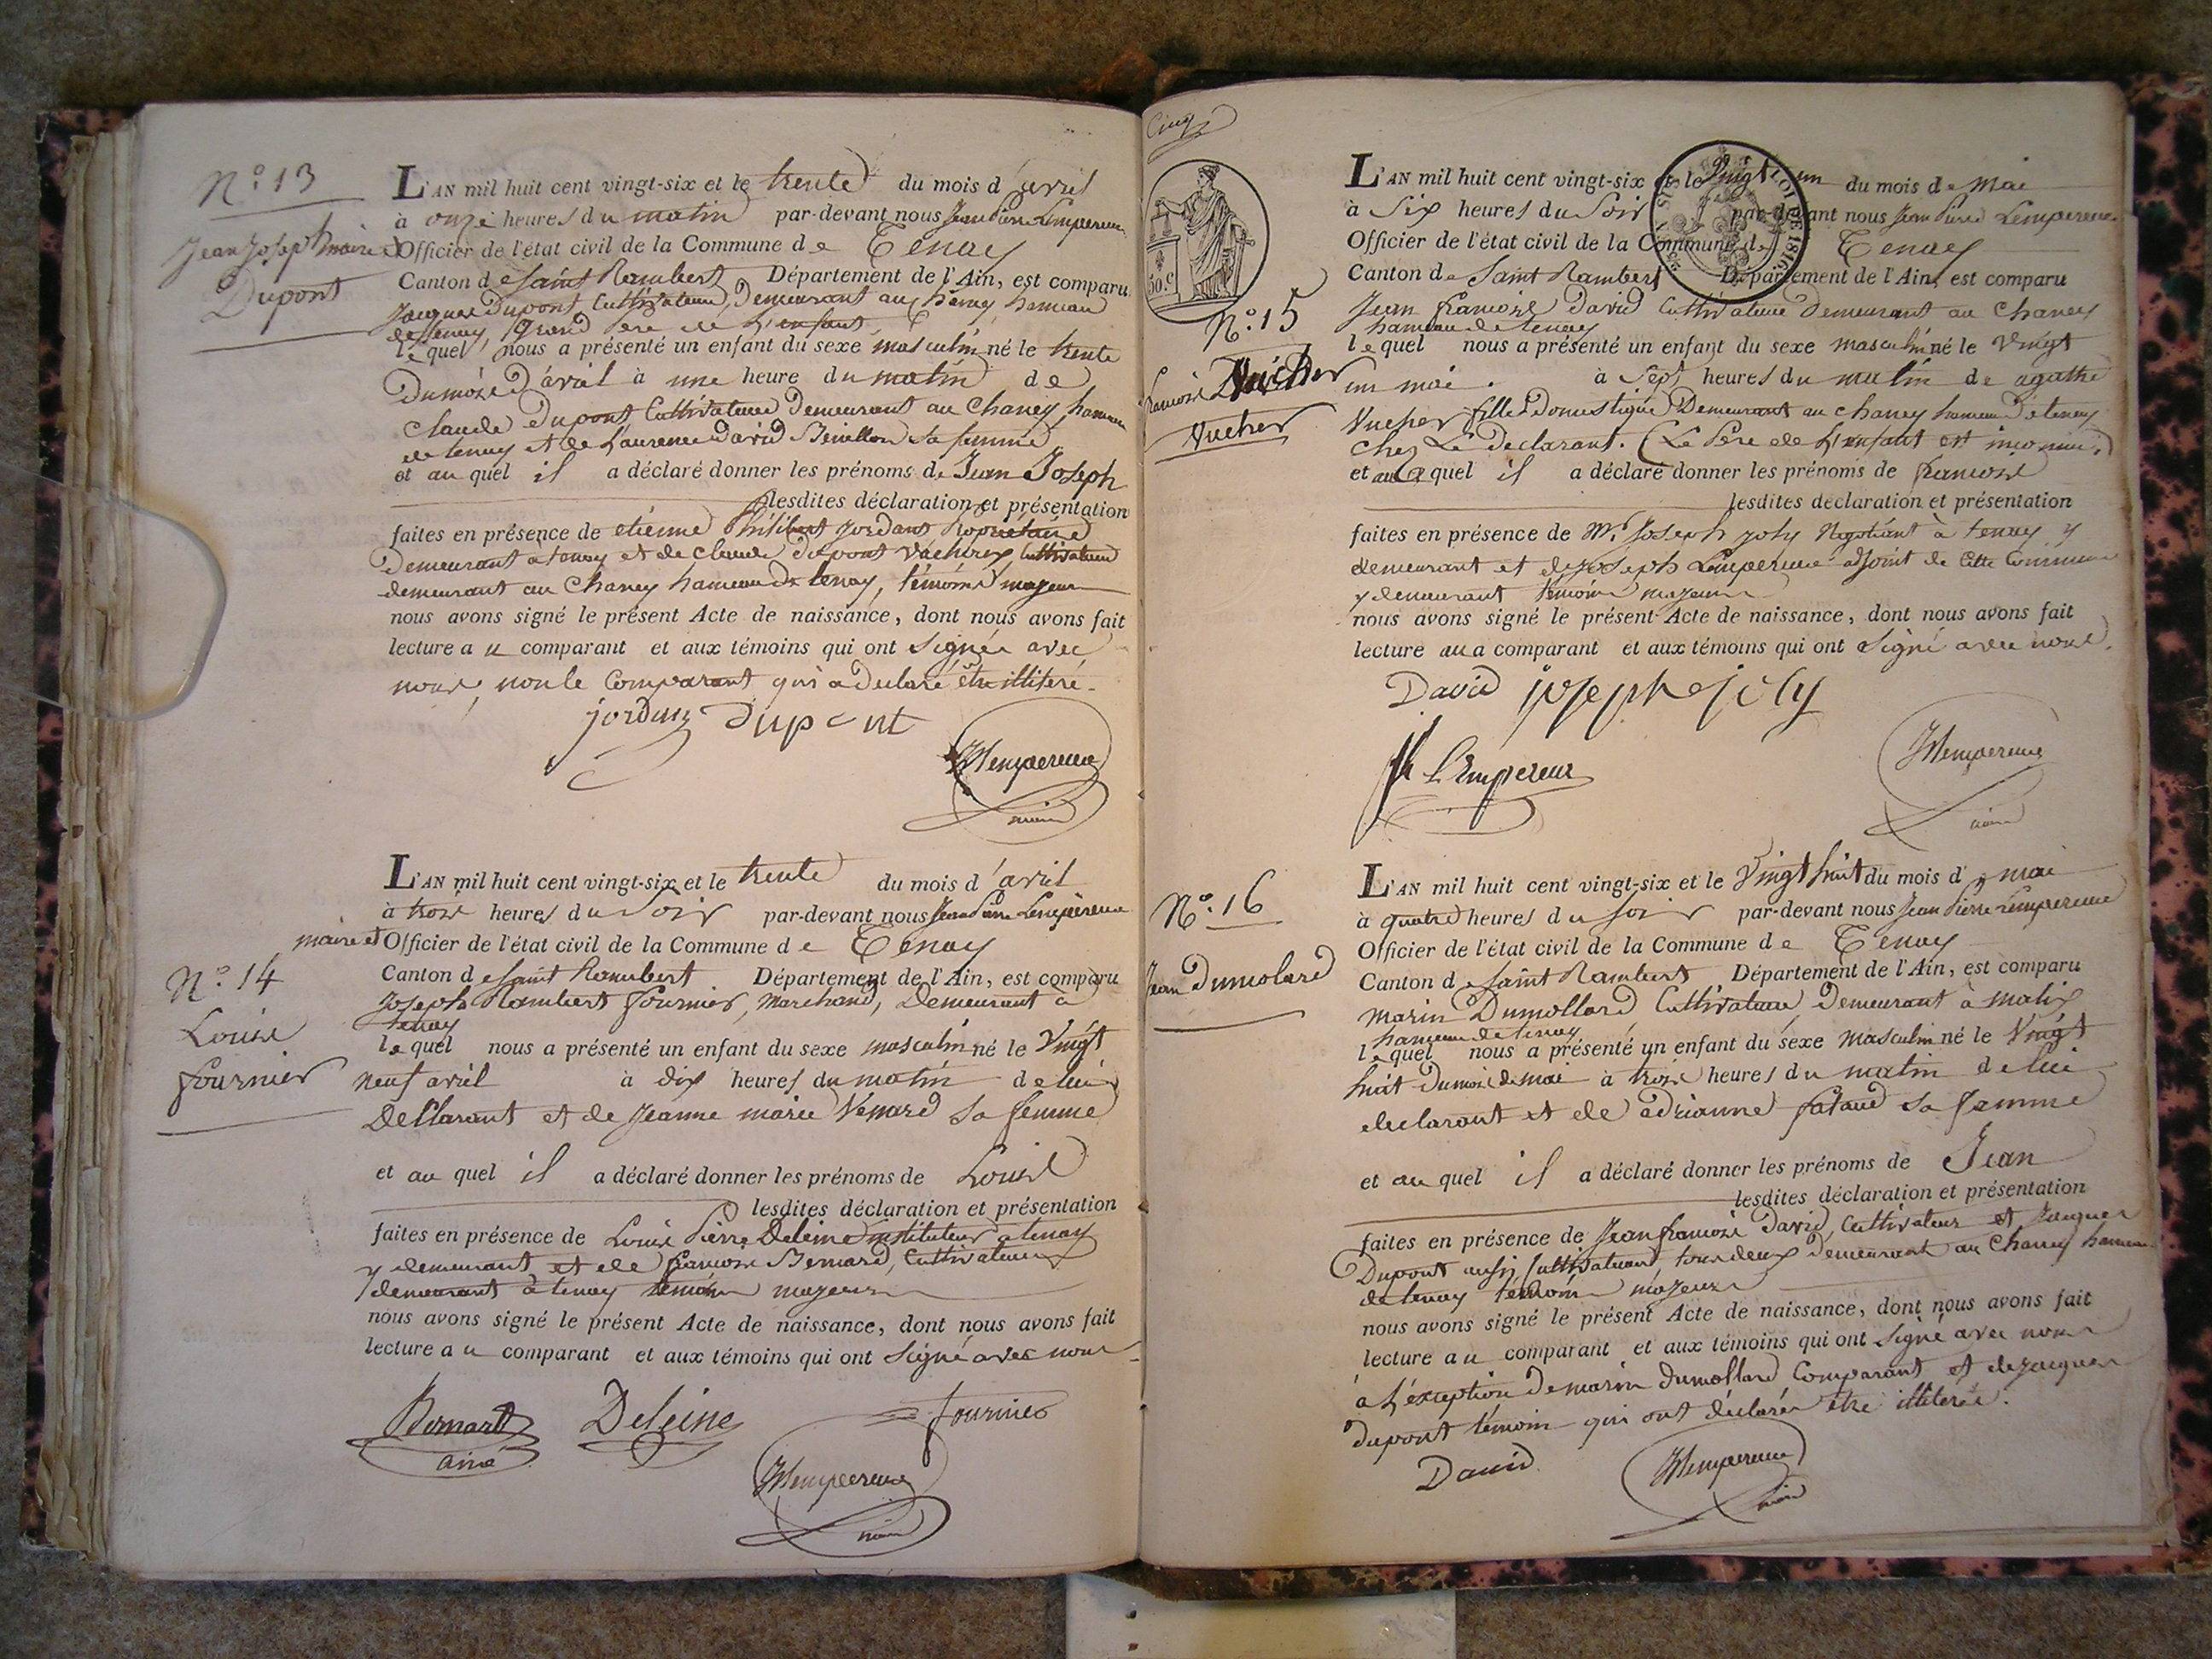 N.° 13
Jean Joseph
Dupont
L'AN mil huit cent vingt-six et le trente du mois d'avril
à onze heures du matin par-devant nous Jean Pierre Lempereur
maire & Officier de l'état civil de la Commune de Tenay
Canton de Saint Rambert Département de l'Ain, est comparu
Jacques Dupont Cultivateur, Demeurant au Chaney, hameau
de tenay, Grand Pere de L'enfant,
lequel nous a présenté un enfant du sexe masculin né le trente
Du mois D'avril à une heure du matin de
Claude Dupont, Cultivateur Demeurant au Chaney, hameau
de tenay et de Laurence David sa femme
et au quel il a déclaré donner les prénoms de Jean Joseph
lesdites déclaration et présentation
faites en présence de etienne Philibert Jordant Propriétaire
Demeurant à tenay et de Claude Dupont Cultivateur
demeurant au Chaney hameau de tenay, témoins majeurs
nous avons signé le présent Acte de naissance, dont nous avons fait
lecture au comparant et aux témoins qui ont Signés avec
nous, non le Comparant qui a declaré être illiteré.
jordan dupont
Lempereur
maire
N.° 14
Louis
fournier
L'AN mil huit cent vingt-six et le trente du mois d'avril
à trois heures du Soir par-devant nous Jean Pierre Lempereur
maire et Officier de l'état civil de la Commune de Tenay
Canton de Saint Rambert Département de l'Ain, est comparu
Joseph Rambert fournier, Marchand, Demeurant à
tenay
lequel nous a présenté un enfant du sexe masculin né le Vingt
neuf avril à dix heures du matin de lui
Declarant et de Jeanne marie Venard sa femme
et au quel il a déclaré donner les prénoms de Louis
lesdites déclaration et présentation
faites en présence de Louis Pierre Deleine instituteur à tenay
y demeurant et de francois Bernard, Cultivateur
demeurant à tenay témoins majeurs
nous avons signé le présent Acte de naissance, dont nous avons fait
lecture au comparant et aux témoins qui ont signé avec nous
Bernard Deleine fournier
ainé
Lempereur
maire
Cinq
50. C
N.° 15
francois
Vucher
L'AN mil huit cent vingt-six et le Vingt un du mois de Mai
à Six heures du Soir par-devant nous Jean Pierre Lempereur
Officier de l'état civil de la Commune de Tenay
Canton de Saint Rambert Département de l'Ain, est comparu
Jean francois David Cultivateur Demeurant au Chaney
hameau de tenay
lequel nous a présenté un enfant du sexe masculin né le Vingt
un mai. à Sept heures du matin de agathe
Vucher fille Domestique Demeurant au chaney hameau de tenay
chez Le Declarant. (Le Pere de L'enfant est inconnu.)
et au quel il a déclaré donner les prénoms de francois
lesdites déclaration et présentation
faites en présence de Mr. Joseph Joly Negotiant à tenay y
demeurant et de Joseph Lempereur adjoint de Cette Commune
y demeurant témoins majeurs
nous avons signé le présent Acte de naissance, dont nous avons fait
lecture au comparant et aux témoins qui ont Signé avec nous.
David joseph joly
L'Empereur
Lempereur
maire
N.° 16
Jean Dumolard
L'AN mil huit cent vingt-six et le Vingt huit du mois de mai
à quatre heures du soir par-devant nous Jean Pierre Lempereur
Officier de l'état civil de la Commune de Tenay
Canton de Saint Rambert Département de l'Ain, est comparu
Marin Dumollard Cultivateur, Demeurant à Malix
hameau de tenay
lequel nous a présenté un enfant du sexe Masculin né le Vingt
huit Du mois de mai à trois heures du matin de lui
declarant et de adrianne fataud sa femme
et au quel il a déclaré donner les prénoms de Jean
lesdites déclaration et présentation
faites en présence de Jean francois David, Cultivateur et Jacques
Dupont aussi Cultivateur, tous deux Demeurant au Chaney hameau
de tenay témoins majeurs
nous avons signé le présent Acte de naissance, dont nous avons fait
lecture au comparant et aux témoins qui ont signé avec nous
à L'éxception De marin dumollard Comparant et de Jacques
dupont témoin qui ont déclarés être illiterés.
David
Lempereur
maire